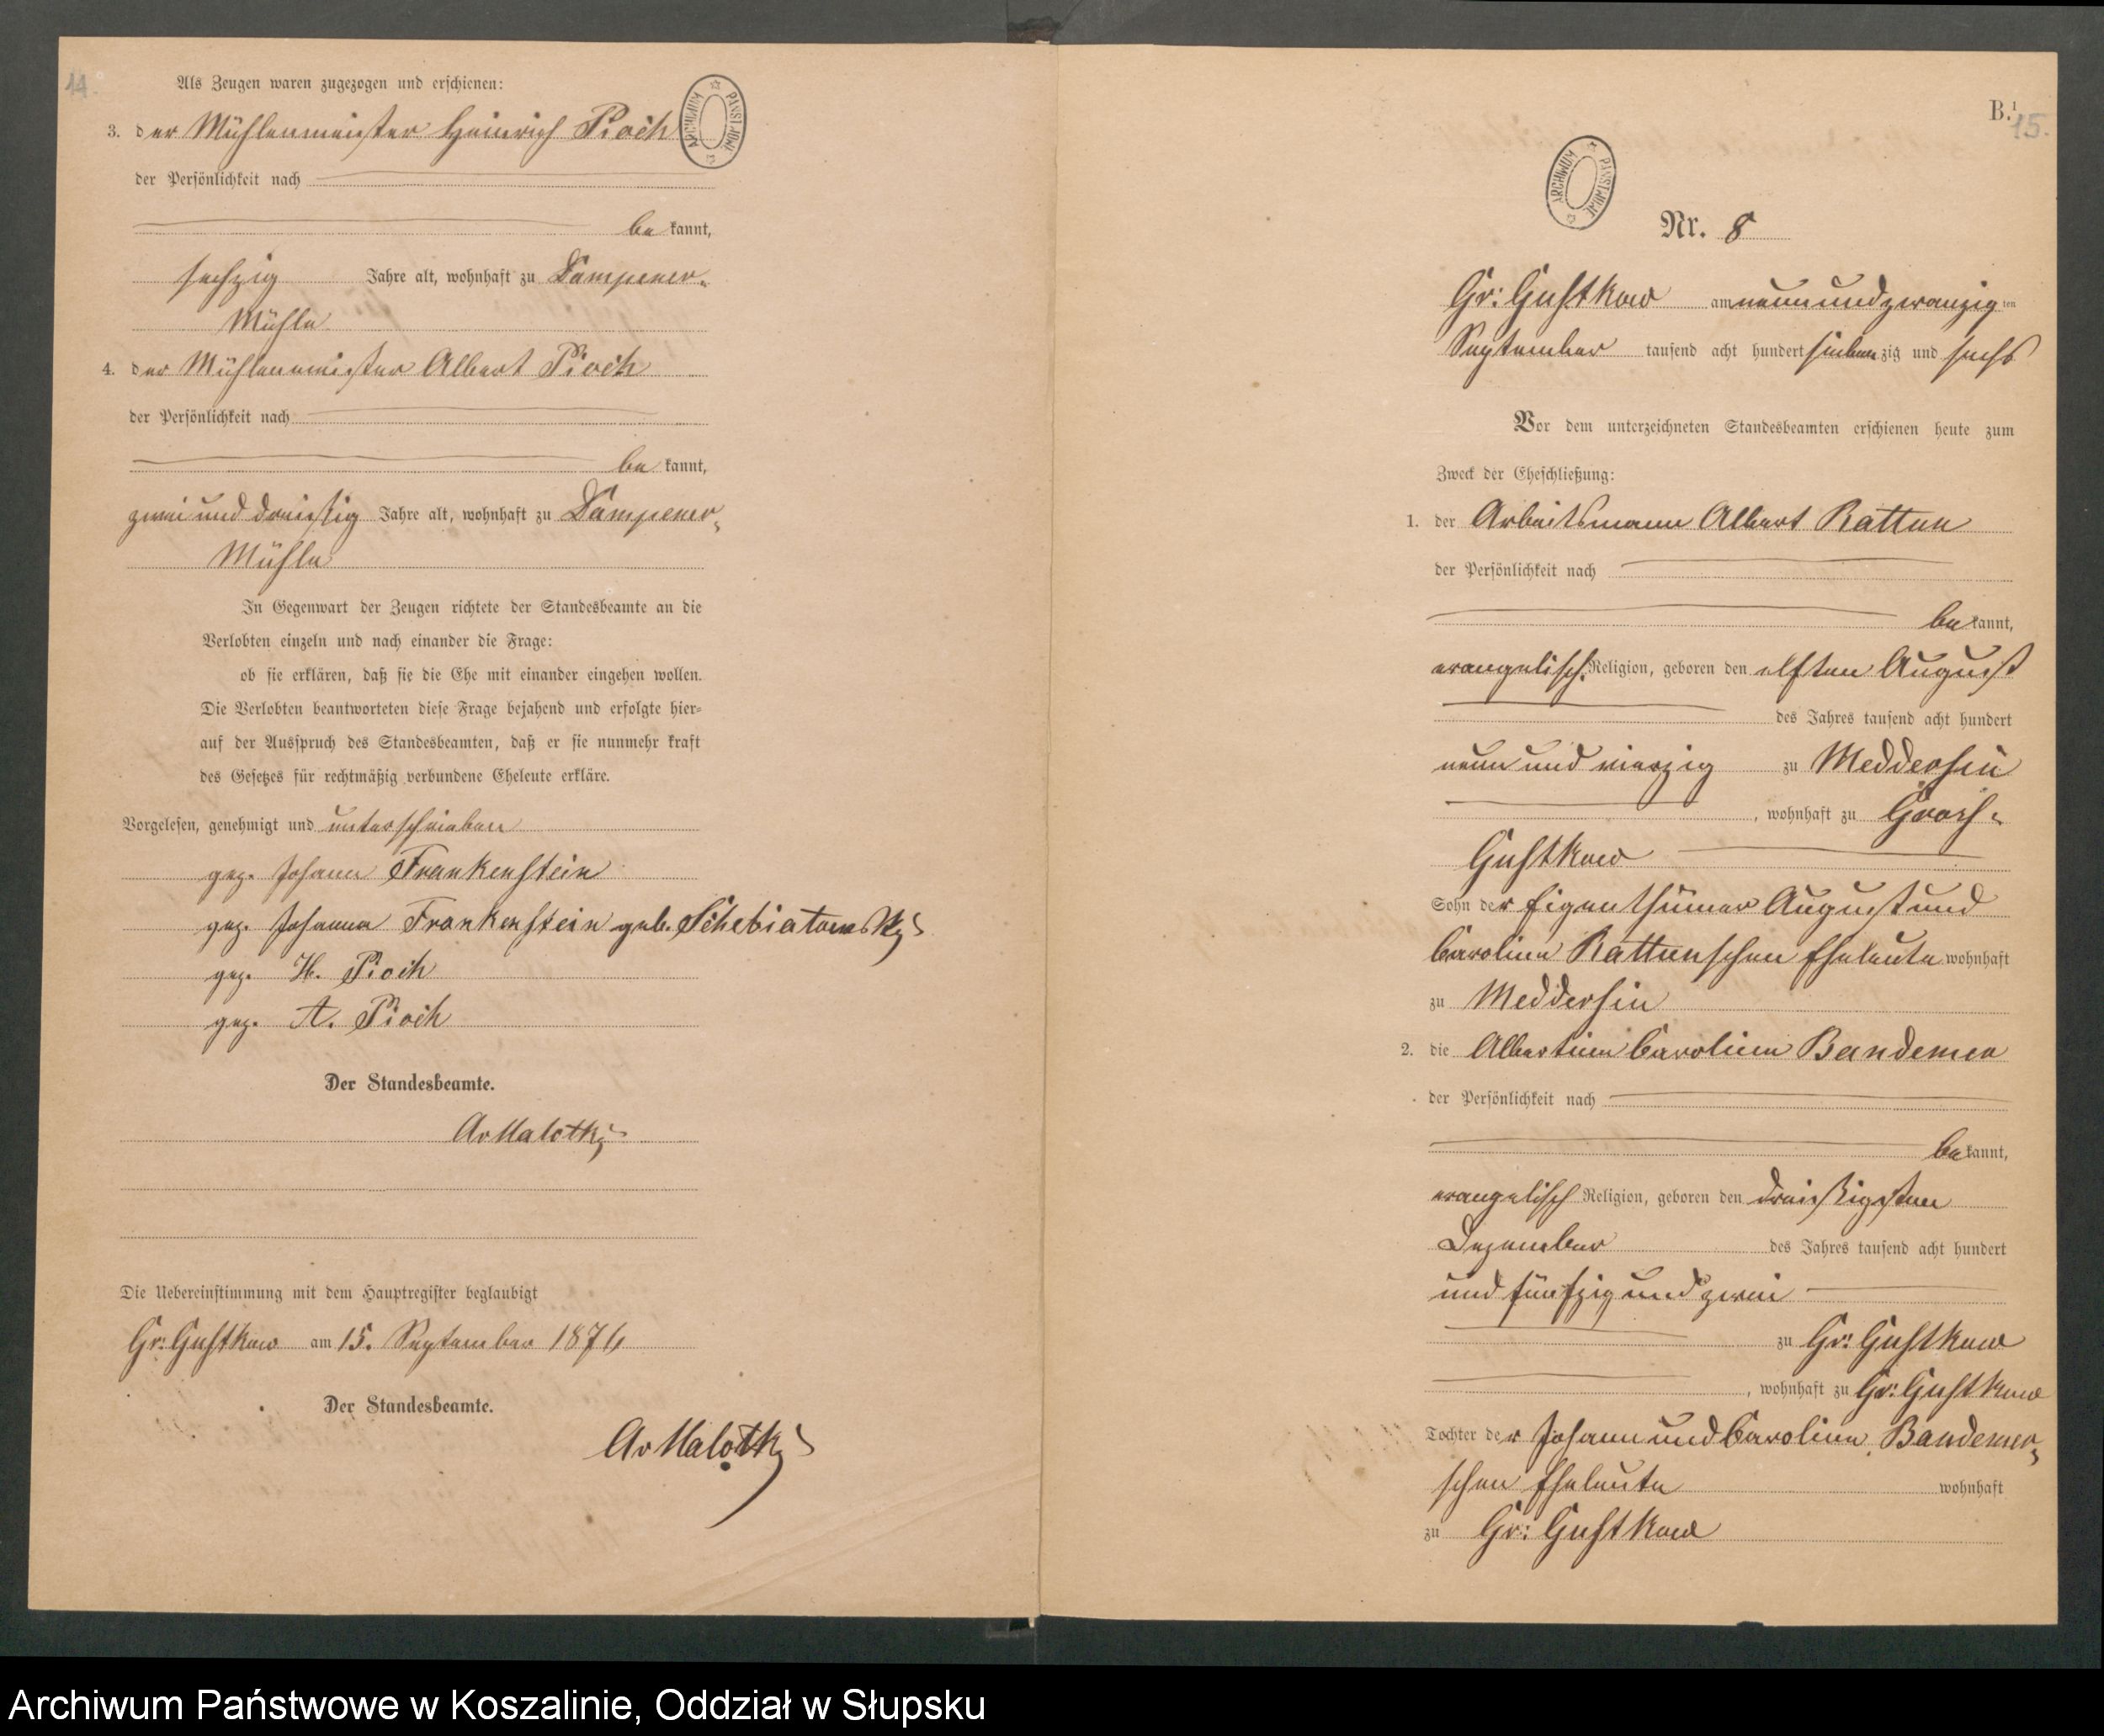 14.
Als Zeugen waren zugezogen und erschienen:
3. der Mühlenmeister Heinrich Pioch
der Persönlichkeit nach
bekannt,
sechzig Jahre alt, wohnhaft zu Dampener-
Mühle
4. der Mühlenmeister Albert Pioch
der Persönlichkeit nach
bekannt,
zwei und dreissig Jahre alt, wohnhaft zu Dampener-
Mühle
In Gegenwart der Zeugen richtete der Standesbeamte an die
Verlobten einzeln und nach einander die Frage:
ob sie erklären, daß sie die Ehe mit einander eingehen wollen.
Die Verlobten beantworteten diese Frage bejahend und erfolgte hier-
auf der Ausspruch des Standesbeamten, daß er sie nunmehr kraft
des Gesetzes für rechtmäßig verbundene Eheleute erkläre.
Vorgelesen, genehmigt und unterschrieben
gez. Johann Frankenstein
gez. Johanna Frankenstein geb.
gez. H. Pioch
gez. A. Pioch
Der Standesbeamte.
AvMalotky
Die Uebereinstimmung mit dem Hauptregister beglaubigt
Gr: Gustkow am 15. September 1876
Der Standesbeamte.
AvMalotky
ARCHIWUM PAŃSTWOWE
B.
15.
ARCHIWUM PAŃSTWOWE
Nr. 8
Gr: Gustkow am neun und zwanzigten
September tausend acht hundert siebenzig und sechs
Vor dem unterzeichneten Standesbeamten erschienen heute zum
Zweck der Eheschließung:
1. der Arbeitsmann Albert Rattun
der Persönlichkeit nach
bekannt,
evangelisch. Religion, geboren den elften August
des Jahres tausend acht hundert
neun und vierzig zu Meddersin
, wohnhaft zu Gross-
Gustkow
Sohn der Eigenthümer August und
Caroline Rattunschen Eheleute wohnhaft
zu Meddersin
2. die Albertine Caroline Bandemer
der Persönlichkeit nach
bekannt,
evangelisch Religion, geboren den dreißigsten
Dezember des Jahres tausend acht hundert
und fünfzig und zwei
zu Gr: Gustkow
, wohnhaft zu Gr: Gustkow
Tochter der Johann und Caroline Bandemer-
schen Eheleute wohnhaft
zu Gr: Gustkow
Archiwum Państwowe w Koszalinie, Oddział w Słupsku